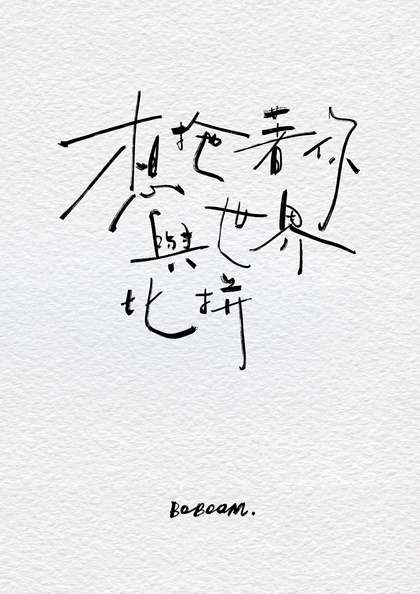 想拖著你
與世界
比拼
BOBOOM.